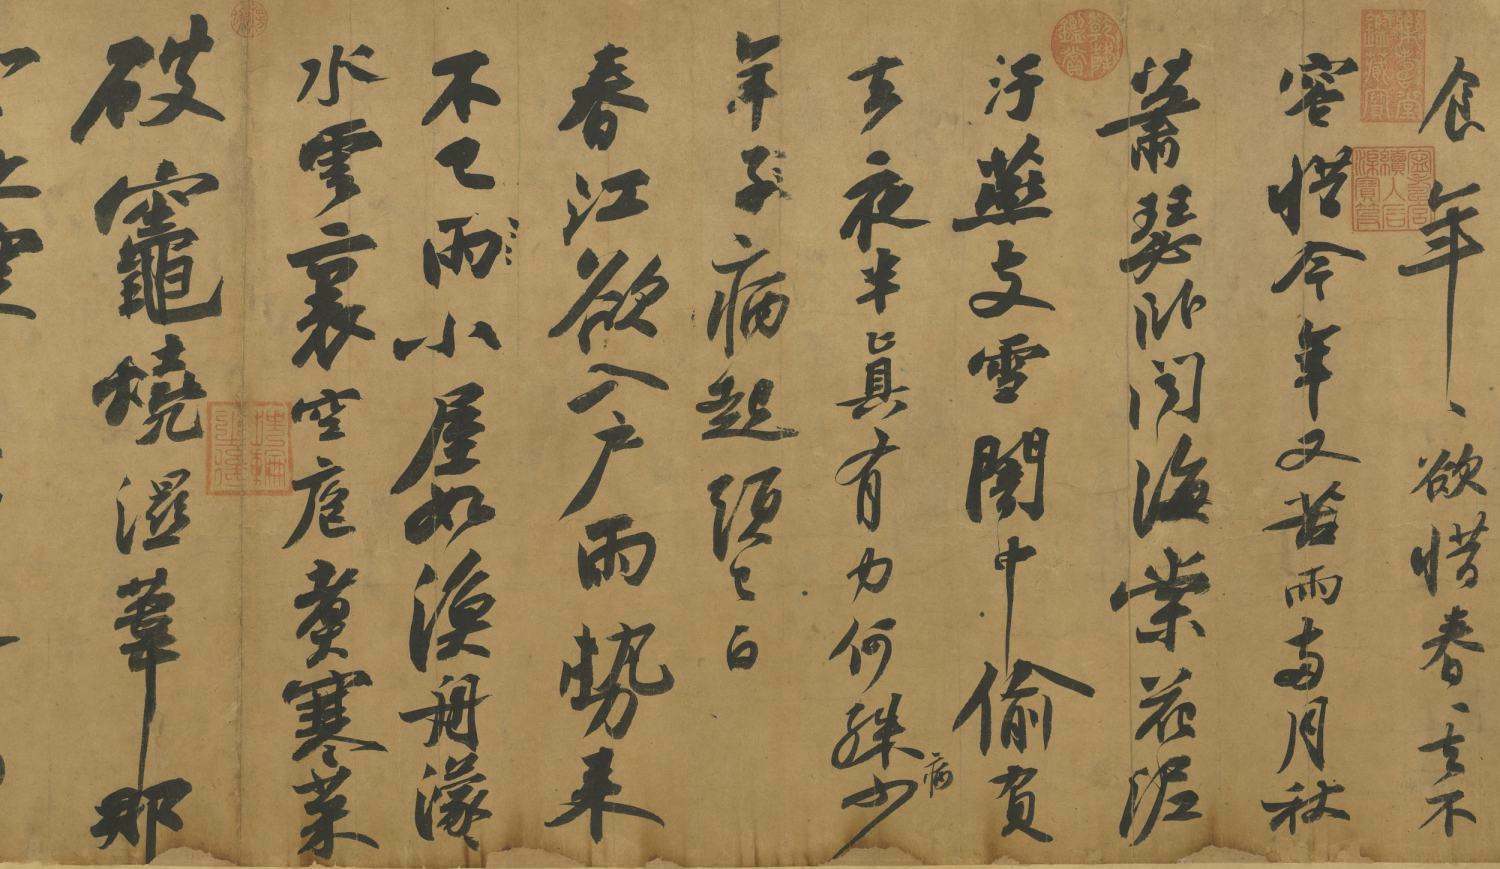 食年、欲惜春春去不
容惜今年又苦雨兩月秋
蕭瑟臥聞海棠花泥
汙燕支雪闇中偷負
去夜半真有力何殊少
病
年子病起頭已白
春江欲入戶雨勢來
不已雨小屋如漁舟濛
水雲裏空庖煮寒菜
破竈燒濕葦那